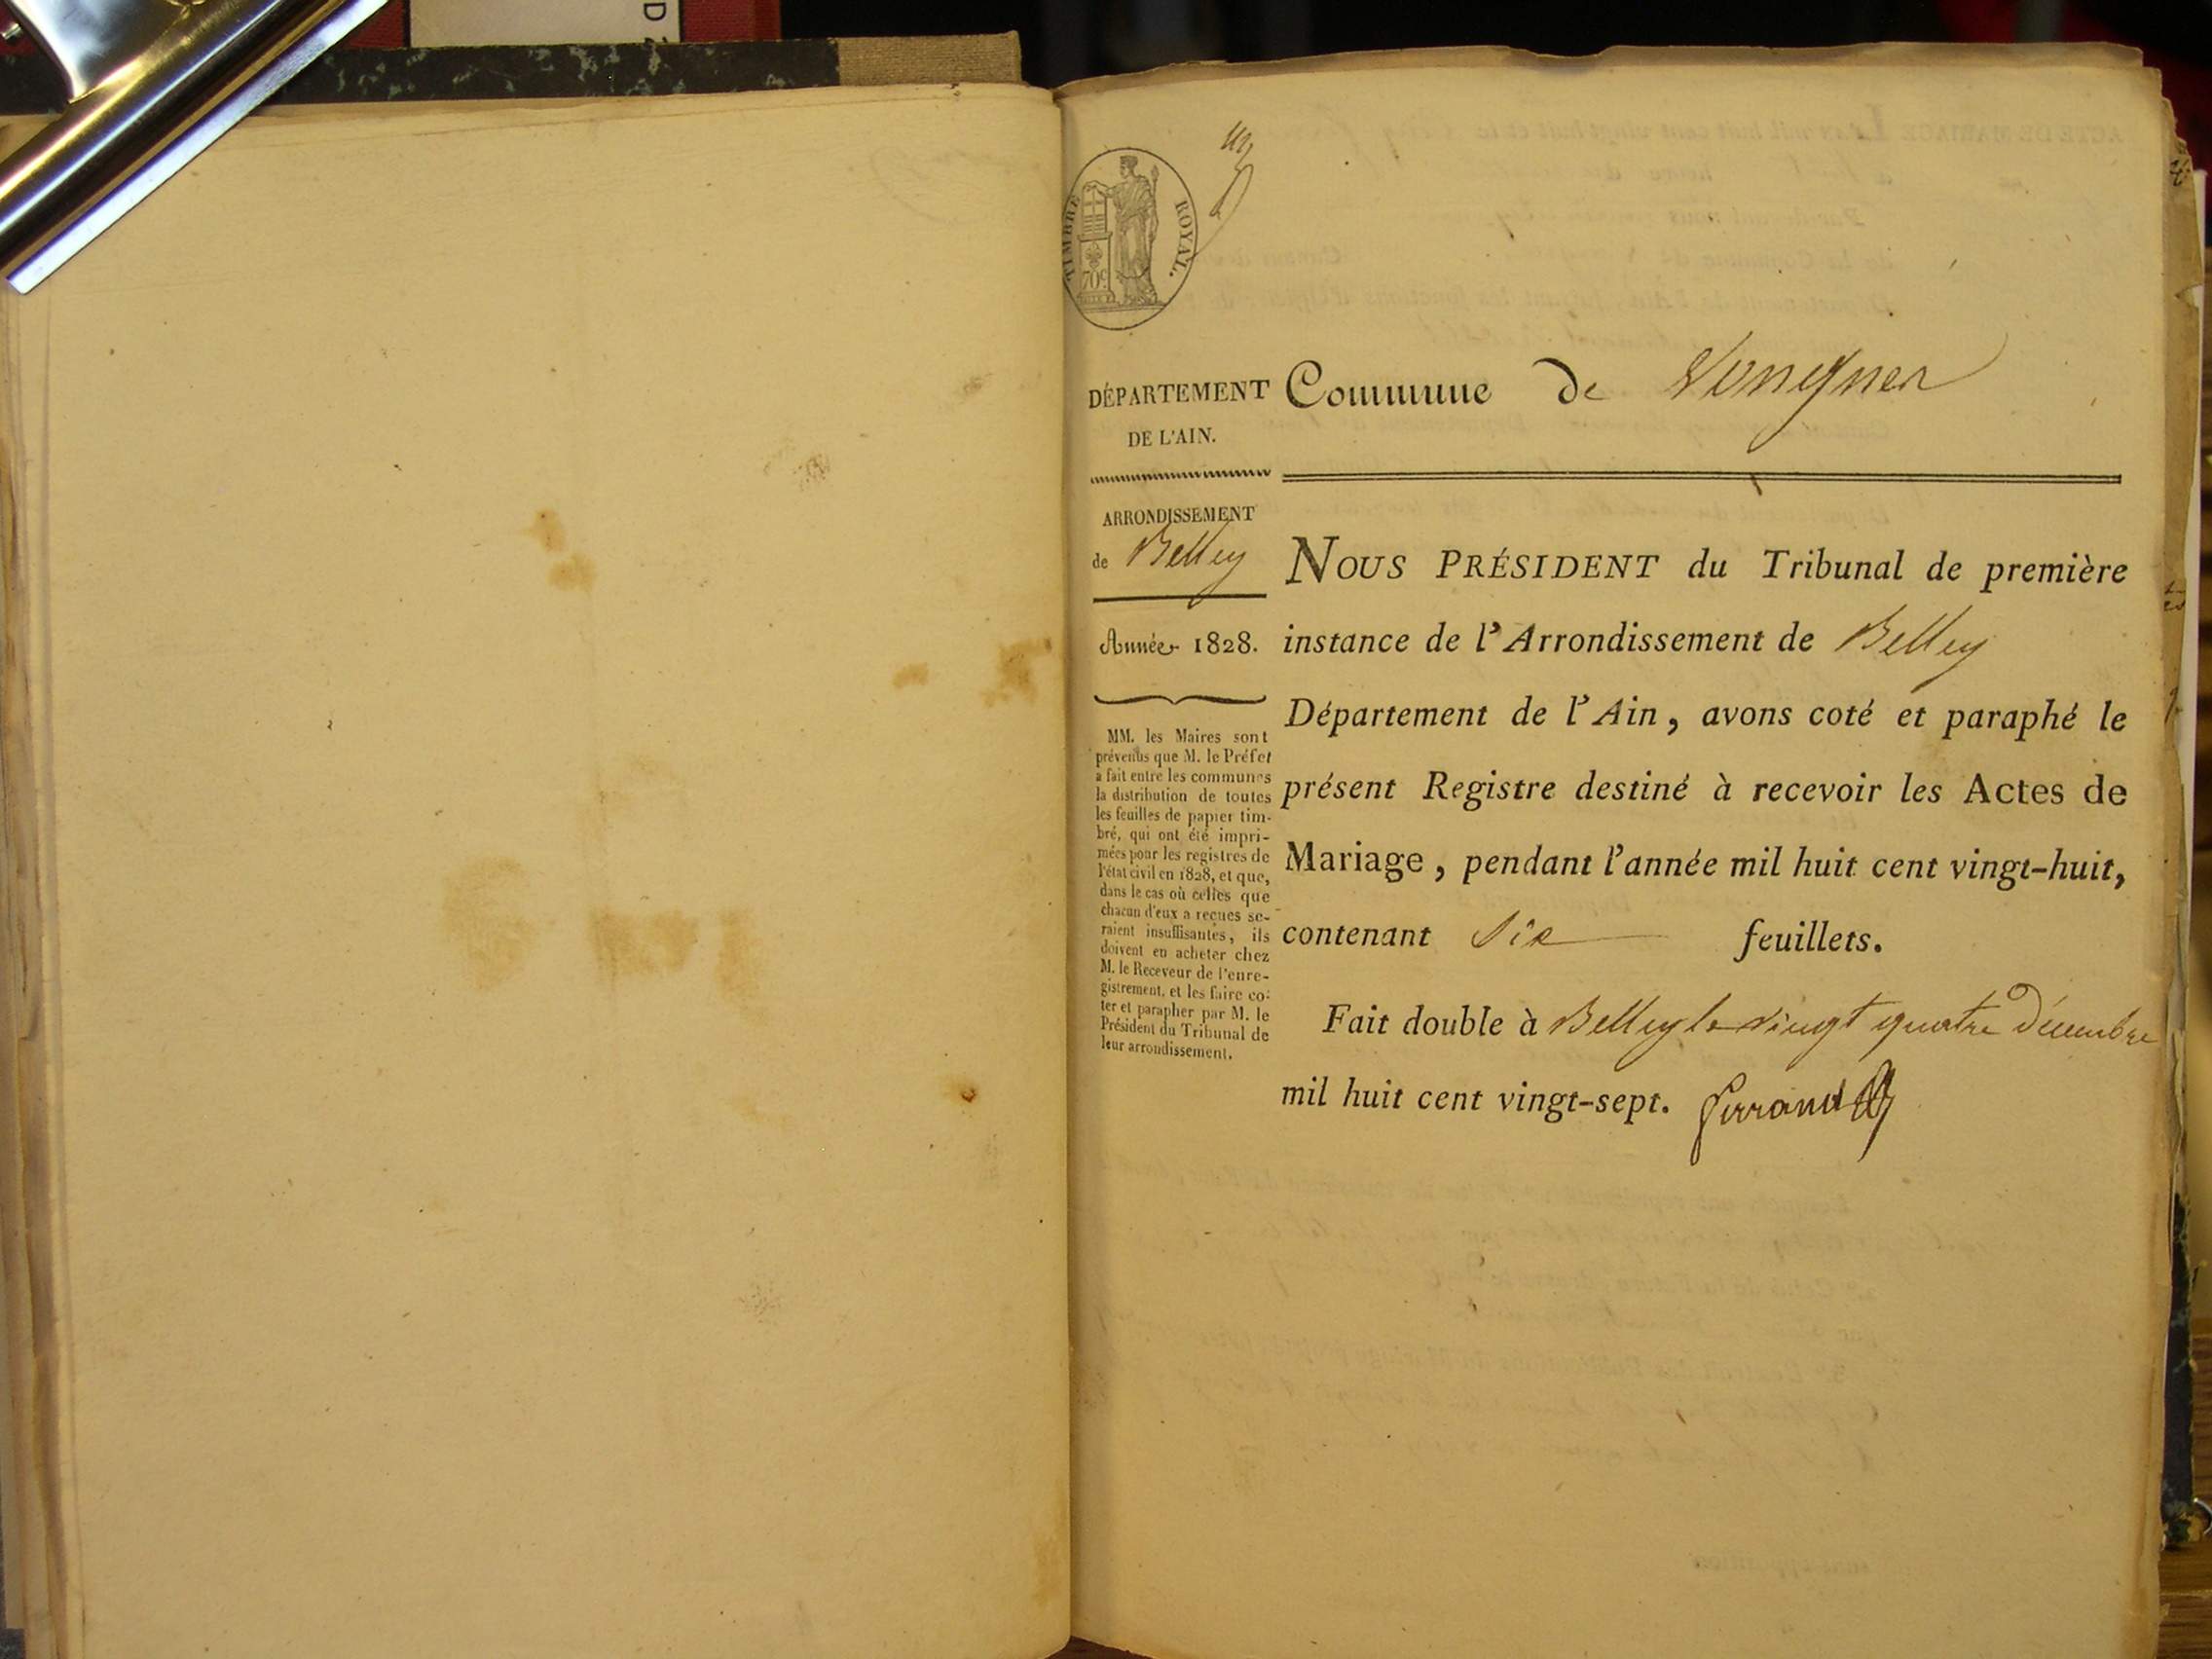 D 2
un
TIMBRE ROYAL.
70c
DÉPARTEMENT
DE L'AIN.
Commune de Vongnes
ARRONDISSEMENT
de Belley
Année 1828.
MM. les Maires sont
prévenus que M. le Préfet
a fait entre les communes
la distribution de toutes
les feuilles de papier tim-
bré, qui ont été impri-
mées pour les registres de
l'état civil en 1828, et que,
dans le cas où celles que
chacun d'eux a reçues se-
raient insuffisantes, ils
doivent en acheter chez
M. le Receveur de l'enre-
gistrement, et les faire co-
ter et parapher par M. le
Président du Tribunal de
leur arrondissement.
NOUS PRÉSIDENT du Tribunal de première
instance de l'Arrondissement de Belley
Département de l'Ain, avons coté et paraphé le
présent Registre destiné à recevoir les Actes de
Mariage, pendant l'année mil huit cent vingt-huit,
contenant Six feuillets.
Fait double à Belley le vingt quatre Décembre
mil huit cent vingt-sept.